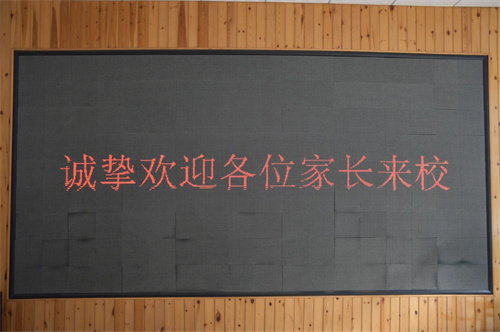 诚挚欢迎各位家长来校